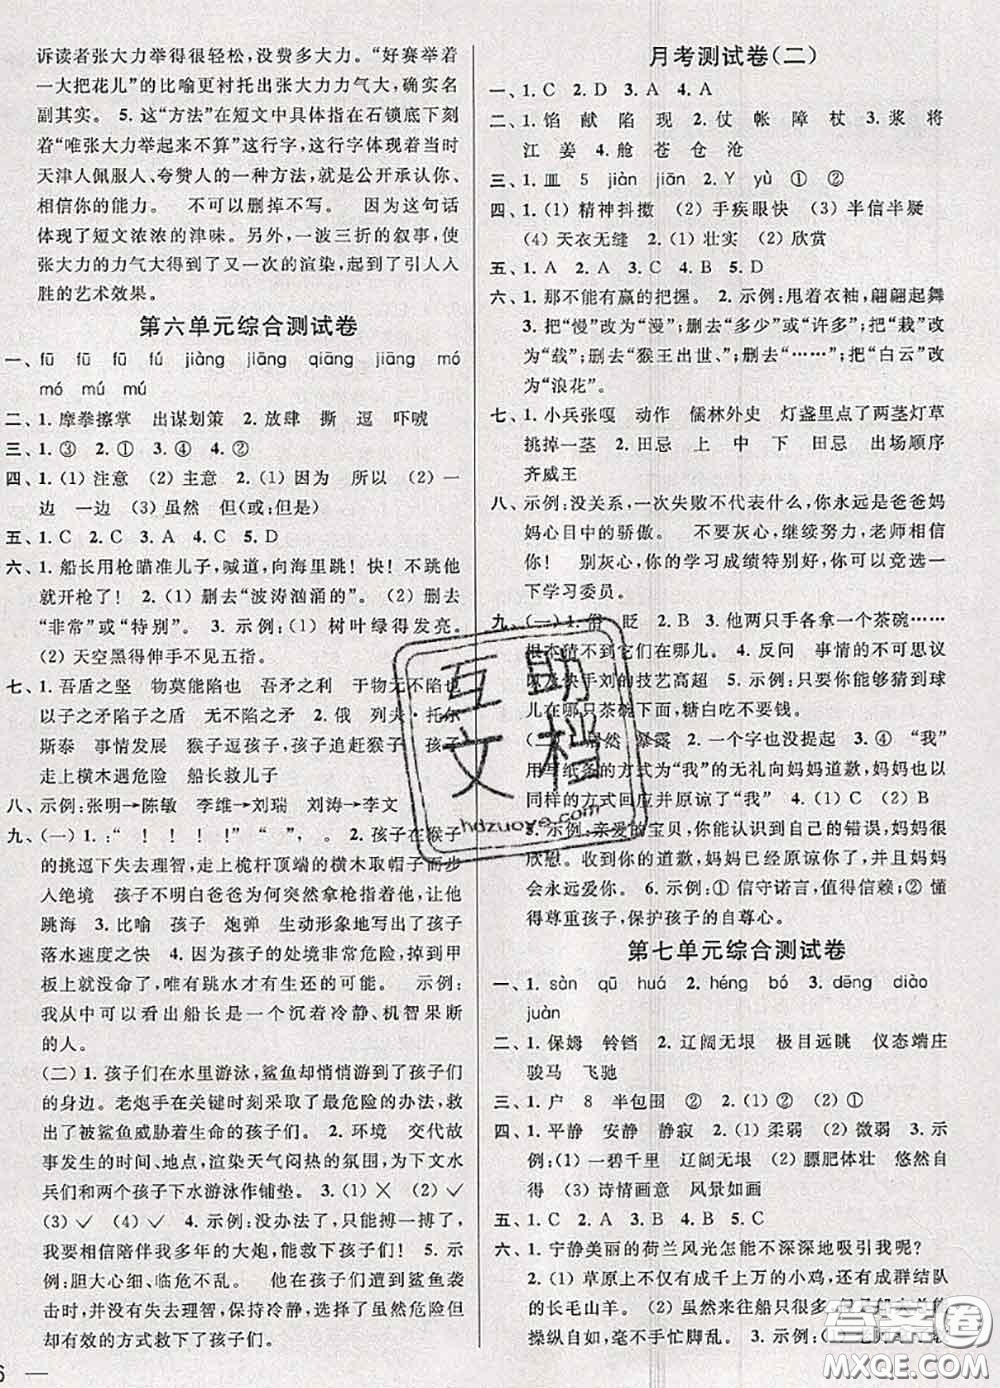 诉读者张大力举得很轻松，没费多大力。“好赛举着
一大把花儿”的比喻更衬托出张大力力气大，确实名
副其实。 5. 这“方法”在短文中具体指在石锁底下刻
着“唯张大力举起来不算”这行字，这行字是当时
天津人佩服人、夸赞人的一种方法，就是公开承认你、
相信你的能力。 不可以删掉不写。 因为这句话
体现了短文浓浓的津味。另外，一波三折的叙事，使
张大力的力气大得到了又一次的渲染，起到了引人入
胜的艺术效果。
第六单元综合测试卷
一、fū fū fū fú jiàng jiāng qiāng jiāng mó
mó mú mú
二、1. 摩拳擦掌 出谋划策 2. 放肆 撕 逗 吓唬
三、1. ③ 2. ① 3. ④ 4. ②
四、1.(1) 注意 (2) 主意 2.(1) 因为 所以 (2) 一
边 一边 (3) 虽然 但(或:但是)
五、1. C 2. C 3. A 4. C 5. D
六、1. 船长用枪瞄准儿子，喊道，向海里跳！快！不跳他
就开枪了！ 2.(1) 删去“波涛汹涌的”。 (2) 删去
“非常”或“特别”。 3. 示例:(1) 树叶绿得发亮。
(2) 天空黑得伸手不见五指。
七、1. 吾盾之坚 物莫能陷也 吾矛之利 于物无不陷也
以子之矛陷子之盾 无不陷者 2. 俄 列夫·托尔
斯泰 事情发展 猴子逗孩子 孩子追赶猴子 孩子
走上横木遇危险 船长救儿子
八、示例:张明→陈敏 李维→刘瑞 刘涛→李文
九、(一) 1. :“ ！ ！ ！ ！” “ ”， 。 2. 孩子在猴子
的挑逗下失去理智，走上桅杆顶端的横木取帽子而步
人绝境 孩子不明白爸爸拿枪指着他，会让他
跳海 3. 比喻 孩子 炮弹 生动形象地写出了孩子
落水速度之快 4. 同意。因为孩子的处境非常危险，掉到甲
板上就没命了，唯有跳水才有生还的可能。 示例:
我从中可以看出船长是一个沉着冷静、机智果断
的人。
(二) 1. 孩子们在水里游泳，鲨鱼却悄悄游到了孩子们
的身边。老炮手在关键时刻采取了最危险的办法，救下
被鲨鱼威胁着生命的孩子们。 2. 环境 交代故
事发生的时间、地点，渲染天气闷热的氛围，为下文水
兵们和两个孩子下水游泳作铺垫。 3.(1) ✕ (2) ✓
(3) ✓ (4) ✓ 4. 示例:没办法了，只能搏一搏了，
我要相信陪伴我多年的大炮，能救下孩子们！ 5. 示
例:胆大心细、临危不乱。 他在孩子们遭到鲨鱼袭
击时，并没有失去理智，保持冷静，选择了虽然危险但
却有效的方式救下了孩子们。
6 —
月考测试卷(二)
一、1. C 2. D 3. A 4. A
二、1. 馅 献 陷 现 2. 仗 帐 障 杖 3. 浆 将
江 姜 4. 舱 苍 仓 沧
三、1. 皿 5 jiàn jiān 2. Y yù ① ②
四、1.(1) 精神抖擞 (2) 手疾眼快 (3) 半信半疑
(4) 天衣无缝 2.(1) 壮实 (2) 欣赏
五、1. A 2. B 3. C 4. D
六、1. 那不能有赢的把握。 2. 示例:甩着衣袖，翩翩起舞
3. 把“慢”改为“漫”；删去“多少”或“许多”；把“栽”改
为“裁”；删去“猴王出世、”；删去“……”；把“白云”改
为“浪花”。
七、1. 小兵张嘎 动作 儒林外史 灯盏里点了两茎灯草
挑掉一茎 2. 田忌 上 中 下 田忌 出场顺序
齐威王
八、示例:没关系，一次失败不代表什么，你永远是爸爸妈
妈心目中的骄傲。 不要灰心，继续努力，老师相信
你！ 别灰心，你的学习成绩特别好，你可以竞选一
下学习委员。
九、(一) 1. 俗 眨 2. B 3. 他两只手各拿一个茶碗……
根本猜不到它们在哪儿。 4. 反问 事情的不可思议
以及快手刘的技艺高超 5. 示例:只要你能够猜到球
儿在哪只茶碗下面，糖白吃不要钱。
(二) 1. 居然 暴露 2. 一个字也没哭 3. ④ “我”
用写纸条的方式为“我”的无礼向妈妈道歉，妈妈也以
同样的方式回应并原谅了“我” 4.(1) C (2) A
5. 示例:亲爱的宝贝，你能认识到自己的错误，妈妈很
欣慰。收到你的道歉，妈妈已经原谅你了，并且妈妈
会永远爱你。 6. 示例:① 信守诺言，值得信赖；② 懂
得尊重孩子，保护孩子的自尊心。
第七单元综合测试卷
一、1. sàn qū huá 2. héng bó 3. dēng diào
juàn
二、1. 保姆 铃铛 2. 辽阔无垠 极目远眺 仪态端庄
骏马 飞驰
三、1. 户 8 半包围 ② 2.(1) ② (2) ①
四、1. 平静 安静 静寂 2.(1) 柔弱 (2) 微弱 3. 示
例:(1) 一碧千里 辽阔无垠 (2) 膘肥体壮 悠然自
得 (3) 诗情画意 风景如画
五、1. C 2. A 3. C 4. D
六、1. 宁静美丽的荷兰风光怎能不深深地吸引我呢？
2.(1) 草原上有成千上万的小鸡，还有成群结队
的长毛山羊。 (2) 虽然来往船只很多，
操纵自如，毫不手忙脚乱。 3. 示例:(1)
互助
文档
hdzuoye.com
答案圈
MXQE.COM